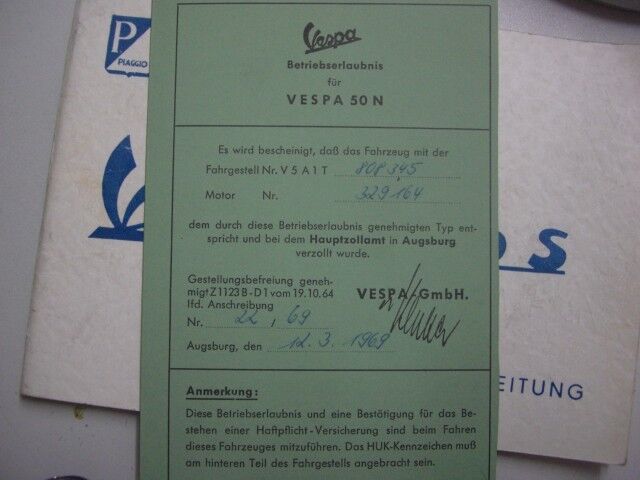 P
PIAGGIO
Vespa
Betriebserlaubnis
für
VESPA 50 N
Es wird bescheinigt, daß das Fahrzeug mit der
Fahrgestell Nr. V 5 A 1 T 808345
Motor Nr. 329164
dem durch diese Betriebserlaubnis genehmigten Typ ent-
spricht und bei dem Hauptzollamt in Augsburg
verzollt wurde.
Gestellungsbefreiung geneh-
migt Z 1123 B - D 1 vom 19.10.64
lfd. Anschreibung
VESPA-GmbH.
Nr. 22 / 69
Augsburg, den 12.3.1969
Anmerkung:
Diese Betriebserlaubnis und eine Bestätigung für das Be-
stehen einer Haftpflicht-Versicherung sind beim Fahren
dieses Fahrzeuges mitzuführen. Das HUK-Kennzeichen muß
am hinteren Teil des Fahrgestells angebracht sein.
EITUNG